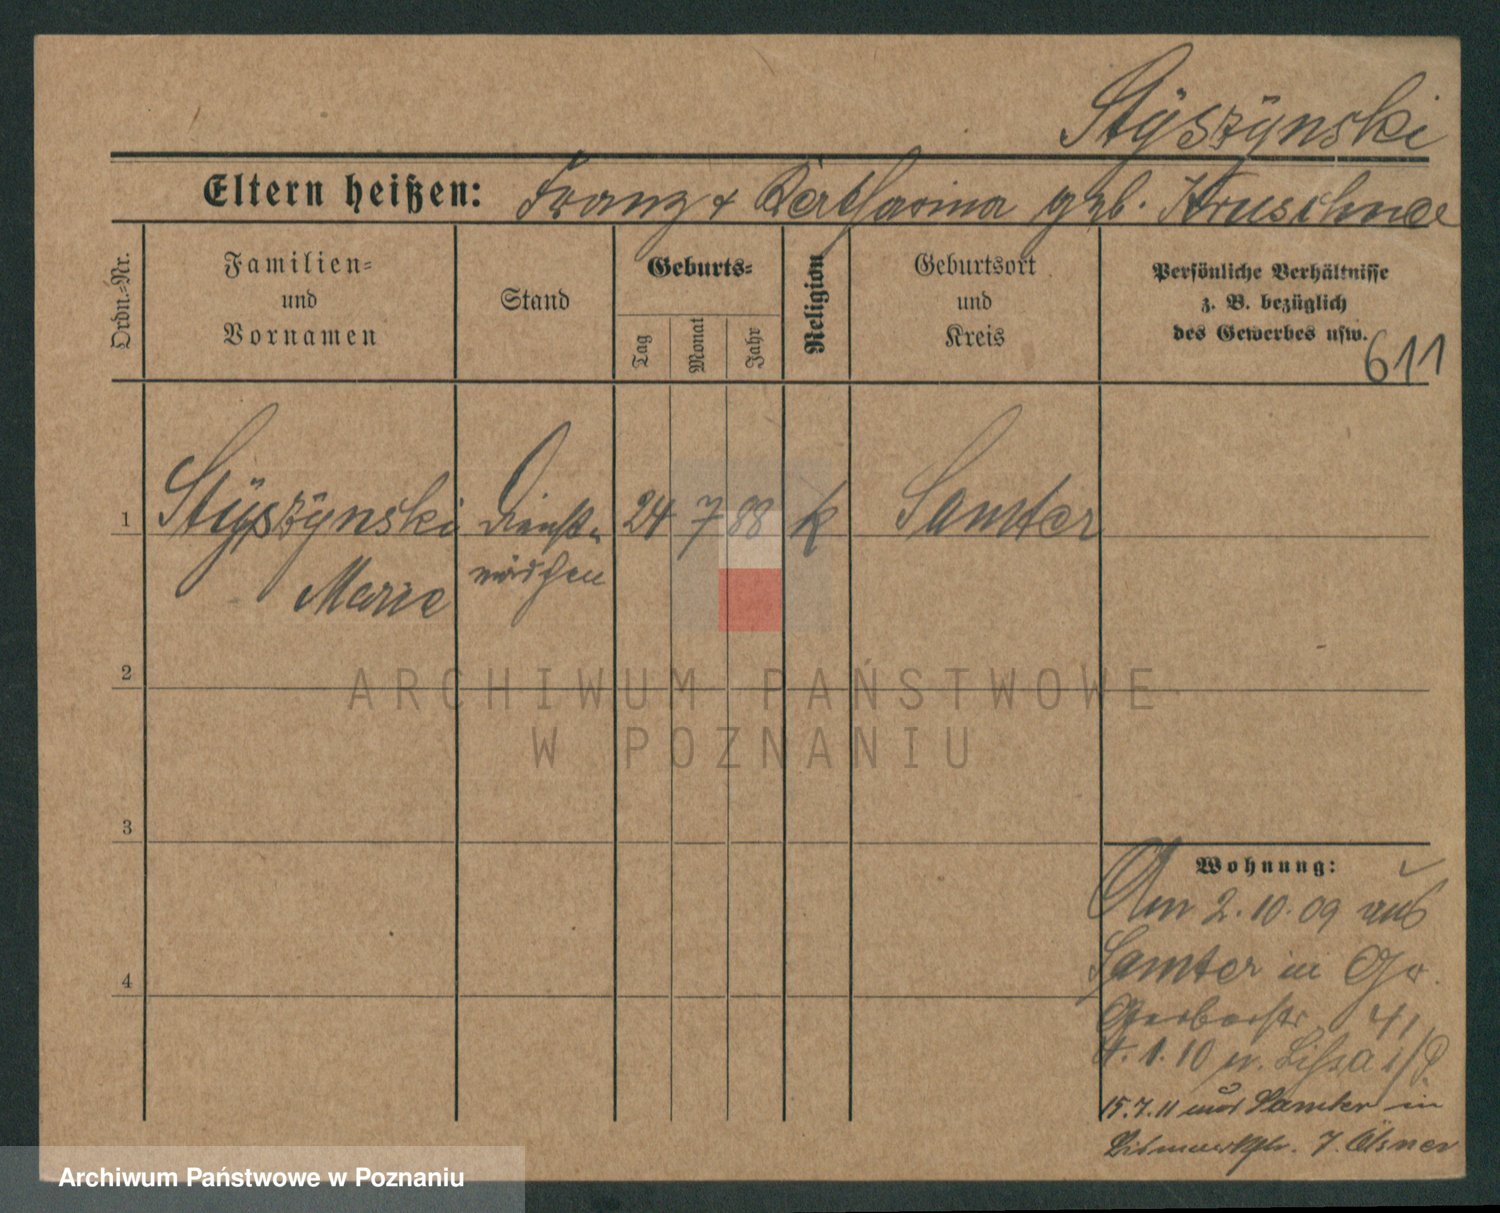 Styszynski
Eltern heißen: Franz & Katharina geb.
Ordn.-Nr.
Familien-
und
Vornamen
Stand
Geburts-
Tag
Monat
Jahr
Religion
Geburtsort
und
Kreis
Persönliche Verhältnisse
z. B. bezüglich
des Gewerbes usw.
611
1 Stÿszÿnski Dienst- 24 7 88 k Samter
Marie mädchen
2
ARCHIWUM PAŃSTWOWE
W POZNANIU
3
Wohnung:
Am 2.10.09 aus
Samter in
Gerberstr 41
4
4.1.10 n. Lissa i/P
15.7.11 aus Samter in
7.
Archiwum Państwowe w Poznaniu